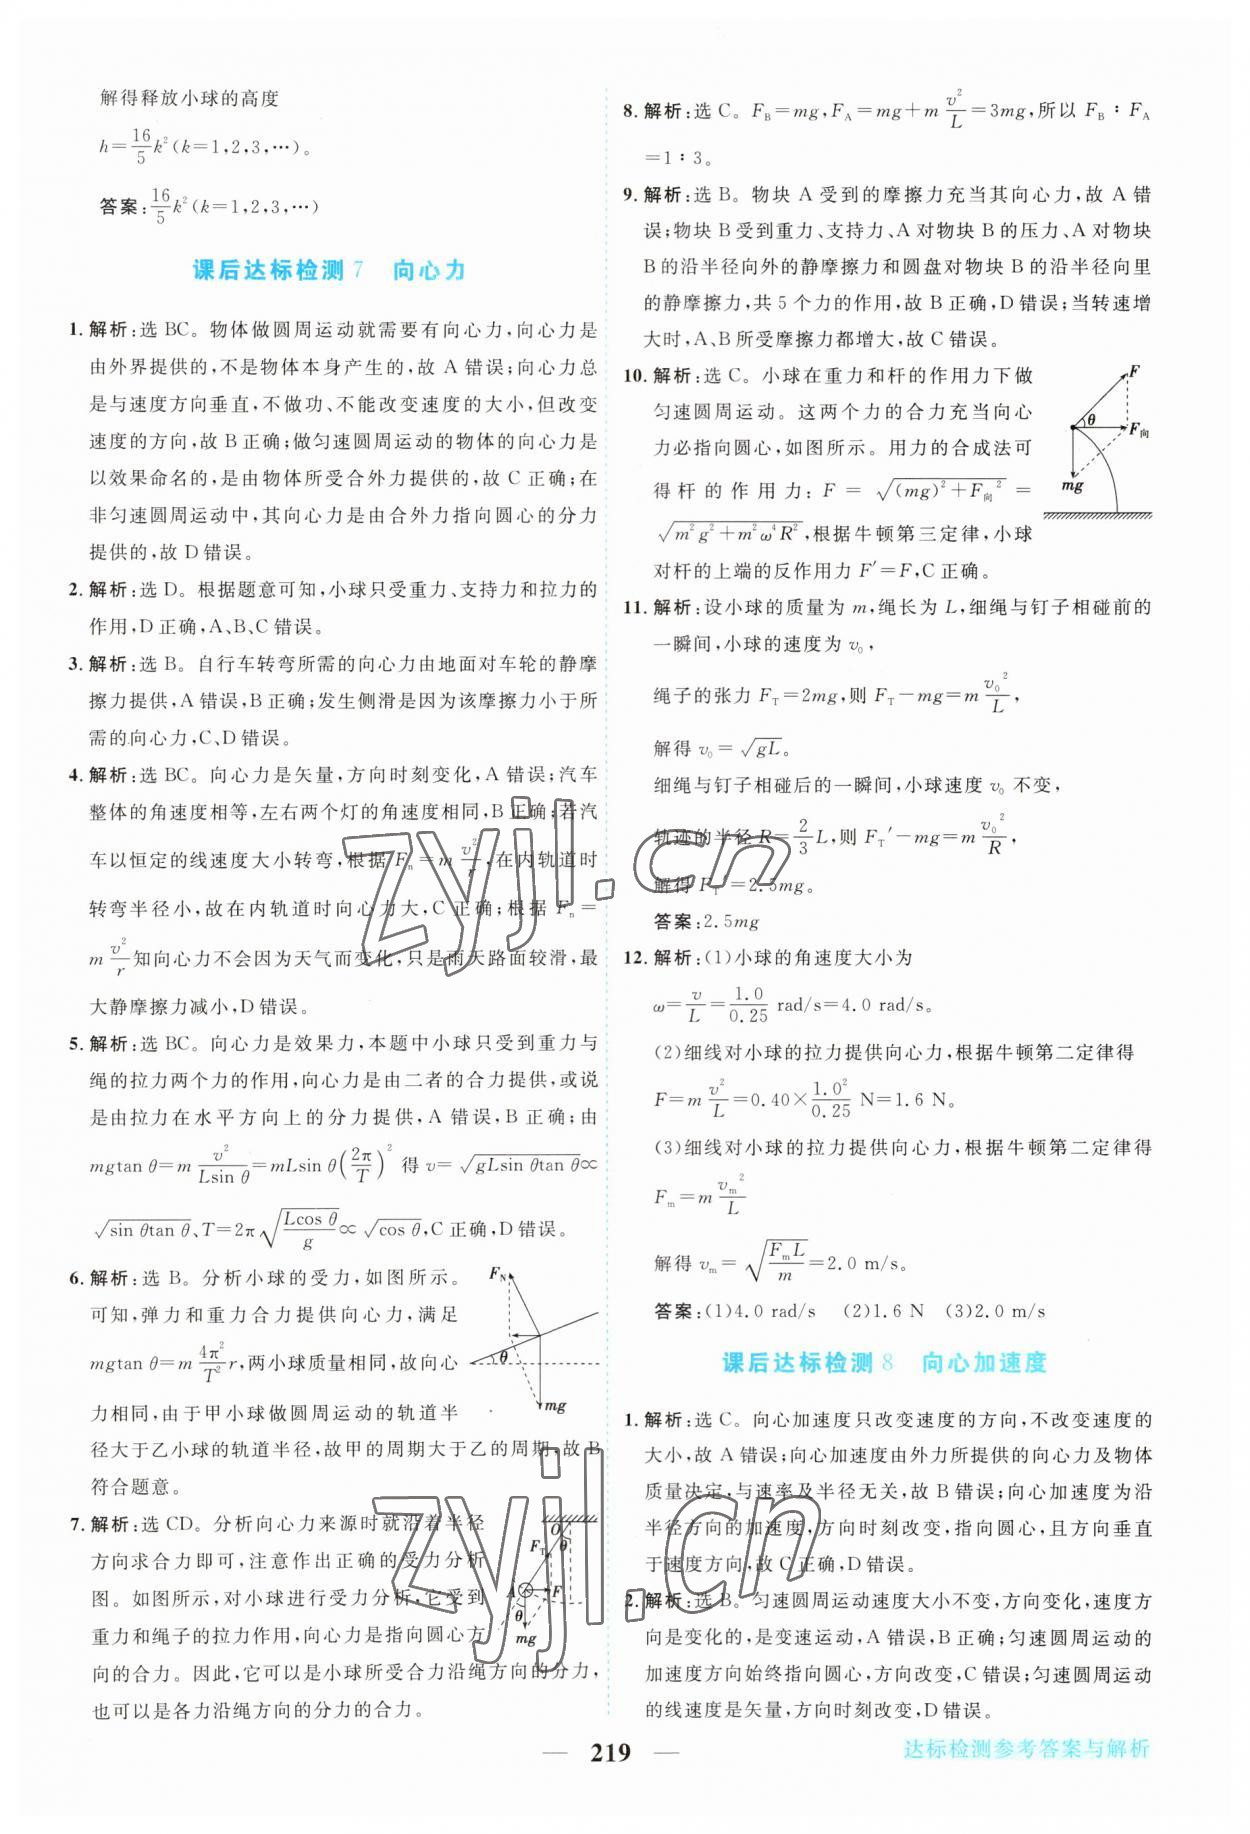 解得释放小球的高度
h=16/5k²(k=1,2,3,…)。
答案:16/5k²(k=1,2,3,…)
课后达标检测7 向心力
1. 解析:选 BC。物体做圆周运动就需要有向心力,向心力是
由外界提供的,不是物体本身产生的,故 A 错误;向心力总
是与速度方向垂直,不做功、不能改变速度的大小,但改变
速度的方向,故 B 正确;做匀速圆周运动的物体的向心力是
以效果命名的,是由物体所受合外力提供的,故 C 正确;在
非匀速圆周运动中,其向心力是由合外力指向圆心的分力
提供的,故 D 错误。
2. 解析:选 D。根据题意可知,小球只受重力、支持力和拉力的
作用,D 正确,A、B、C 错误。
3. 解析:选 B。自行车转弯所需的向心力由地面对车轮的静摩
擦力提供,A 错误,B 正确;发生侧滑是因为该摩擦力小于所
需的向心力,C、D 错误。
4. 解析:选 BC。向心力是矢量,方向时刻变化,A 错误;汽车
整体的角速度相等,左右两个灯的角速度相同,B 正确;若汽
车以恒定的线速度大小转弯,根据 Fn=m v²/r,在内轨道时
转弯半径小,故在内轨道时向心力大,C 正确;根据 Fn=
m v²/r 知向心力不会因为天气而变化,只是雨天路面较滑,最
大静摩擦力减小,D 错误。
5. 解析:选 BC。向心力是效果力,本题中小球只受到重力与
绳的拉力两个力的作用,向心力是由二者的合力提供,或说
是由拉力在水平方向上的分力提供,A 错误,B 正确;由
mgtan θ=m v²/(Lsin θ)=mLsin θ(2π/T)² 得 v=√(gLsin θtan θ)∝
√(sin θtan θ)、T=2π√(Lcos θ/g)∝√(cos θ),C 正确,D 错误。
6. 解析:选 B。分析小球的受力,如图所示。
可知,弹力和重力合力提供向心力,满足
mgtan θ=m 4π²/T² r,两小球质量相同,故向心
力相同,由于甲小球做圆周运动的轨道半
径大于乙小球的轨道半径,故甲的周期大于乙的周期,故 B
符合题意。
FN
θ
mg
7. 解析:选 CD。分析向心力来源时就沿着半径
方向求合力即可,注意作出正确的受力分析
图。如图所示,对小球进行受力分析,它受到
重力和绳子的拉力作用,向心力是指向圆心方
向的合力。因此,它可以是小球所受合力沿绳方向的分力,
也可以是各力沿绳方向的分力的合力。
O
θ
FT
A
F
θ
mg
8. 解析:选 C。FB=mg,FA=mg+m v²/L=3mg,所以 FB∶FA
=1∶3。
9. 解析:选 B。物块 A 受到的摩擦力充当其向心力,故 A 错
误;物块 B 受到重力、支持力、A 对物块 B 的压力、A 对物块
B 的沿半径向外的静摩擦力和圆盘对物块 B 的沿半径向里
的静摩擦力,共 5 个力的作用,故 B 正确,D 错误;当转速增
大时,A、B 所受摩擦力都增大,故 C 错误。
10. 解析:选 C。小球在重力和杆的作用力下做
匀速圆周运动。这两个力的合力充当向心
力必指向圆心,如图所示。用力的合成法可
得杆的作用力:F=√((mg)²+F向²)=
√(m²g²+m²ω⁴R²),根据牛顿第三定律,小球
对杆的上端的反作用力 F′=F,C 正确。
F
θ
F向
mg
11. 解析:设小球的质量为 m,绳长为 L,细绳与钉子相碰前的
一瞬间,小球的速度为 v₀,
绳子的张力 FT=2mg,则 FT-mg=m v₀²/L,
解得 v₀=√(gL)。
细绳与钉子相碰后的一瞬间,小球速度 v₀ 不变,
轨迹的半径 R=2/3L,则 FT′-mg=m v₀²/R,
解得 FT′=2.5mg。
答案:2.5mg
12. 解析:(1)小球的角速度大小为
ω=v/L=1.0/0.25 rad/s=4.0 rad/s。
(2)细线对小球的拉力提供向心力,根据牛顿第二定律得
F=m v²/L=0.40×1.0²/0.25 N=1.6 N。
(3)细线对小球的拉力提供向心力,根据牛顿第二定律得
Fm=m vm²/L
解得 vm=√(FmL/m)=2.0 m/s。
答案:(1)4.0 rad/s (2)1.6 N (3)2.0 m/s
课后达标检测8 向心加速度
1. 解析:选 C。向心加速度只改变速度的方向,不改变速度的
大小,故 A 错误;向心加速度由外力所提供的向心力及物体
质量决定,与速率及半径无关,故 B 错误;向心加速度为沿
半径方向的加速度,方向时刻改变,指向圆心,且方向垂直
于速度方向,故 C 正确,D 错误。
2. 解析:选 B。匀速圆周运动速度大小不变,方向变化,速度方
向是变化的,是变速运动,A 错误,B 正确;匀速圆周运动的
加速度方向始终指向圆心,方向改变,C 错误;匀速圆周运动
的线速度是矢量,方向时刻改变,D 错误。
219
达标检测参考答案与解析
zyjl.cn
zyjl.cn